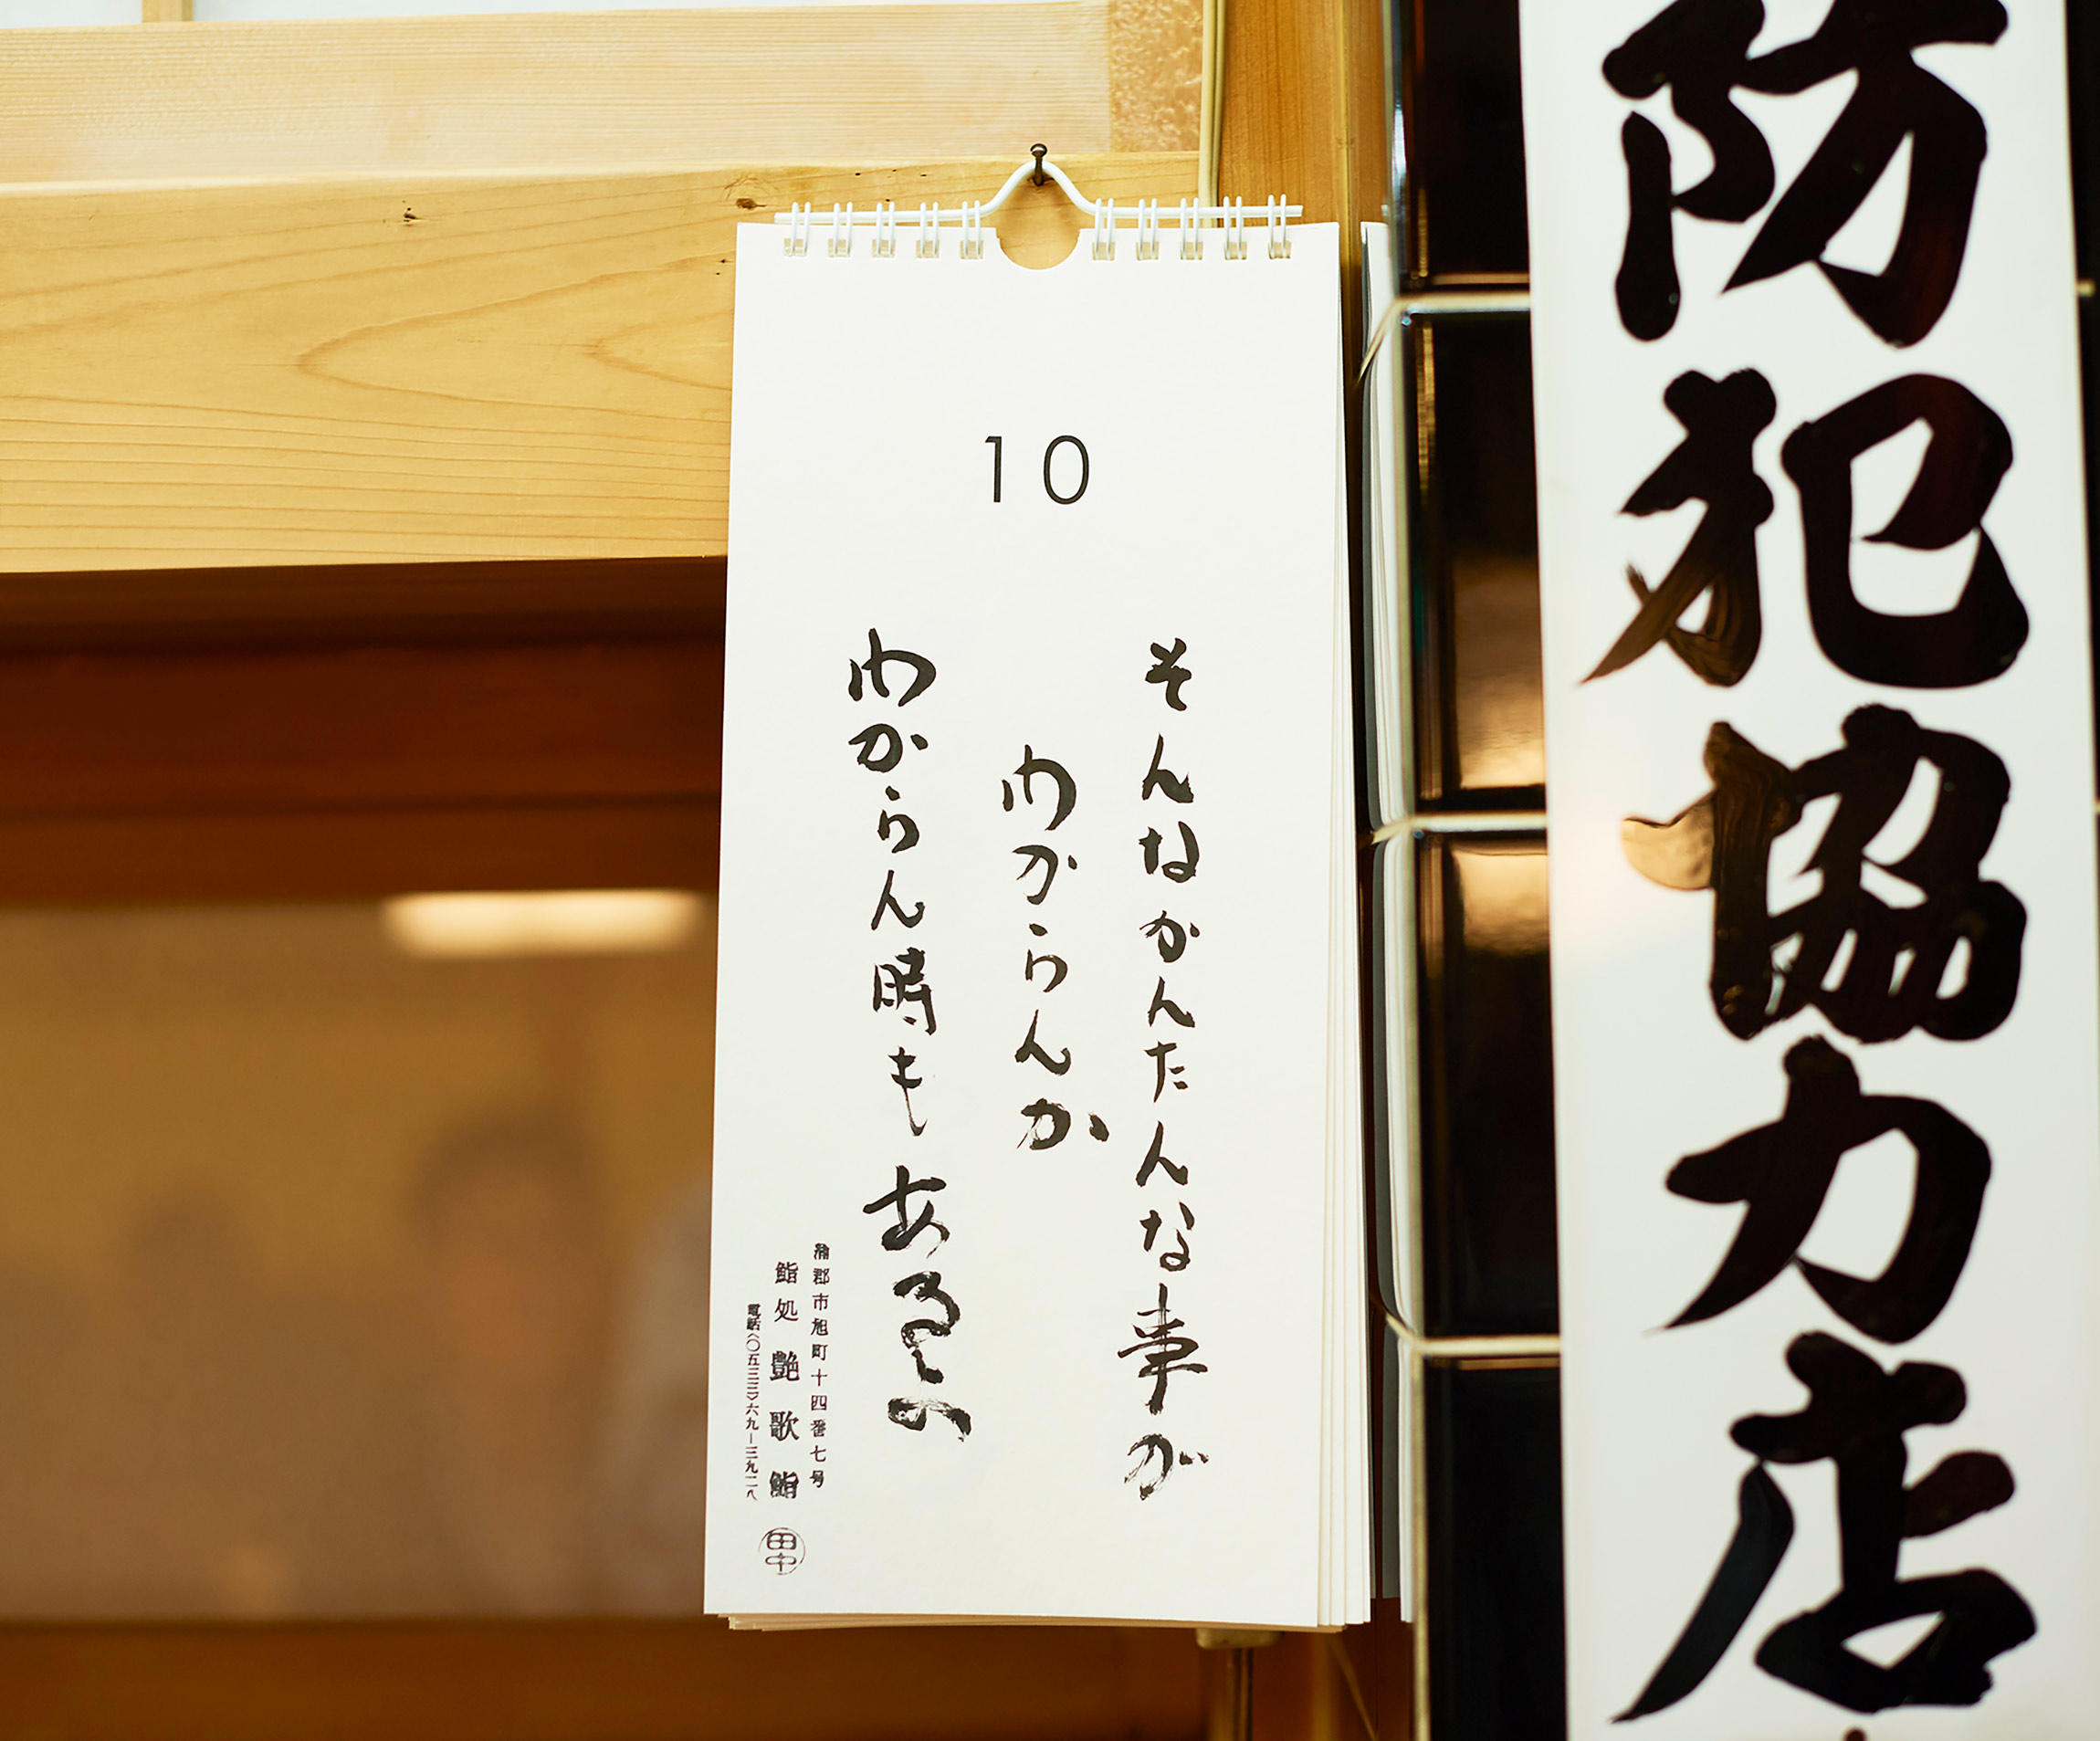 防犯協力店
10
そんなかんたんな事が
わからんか
わからん時もある
蒲郡市旭町十四番七号
鮨処 艶歌鮨
電話(〇五三三)六九ー三九二八
田中